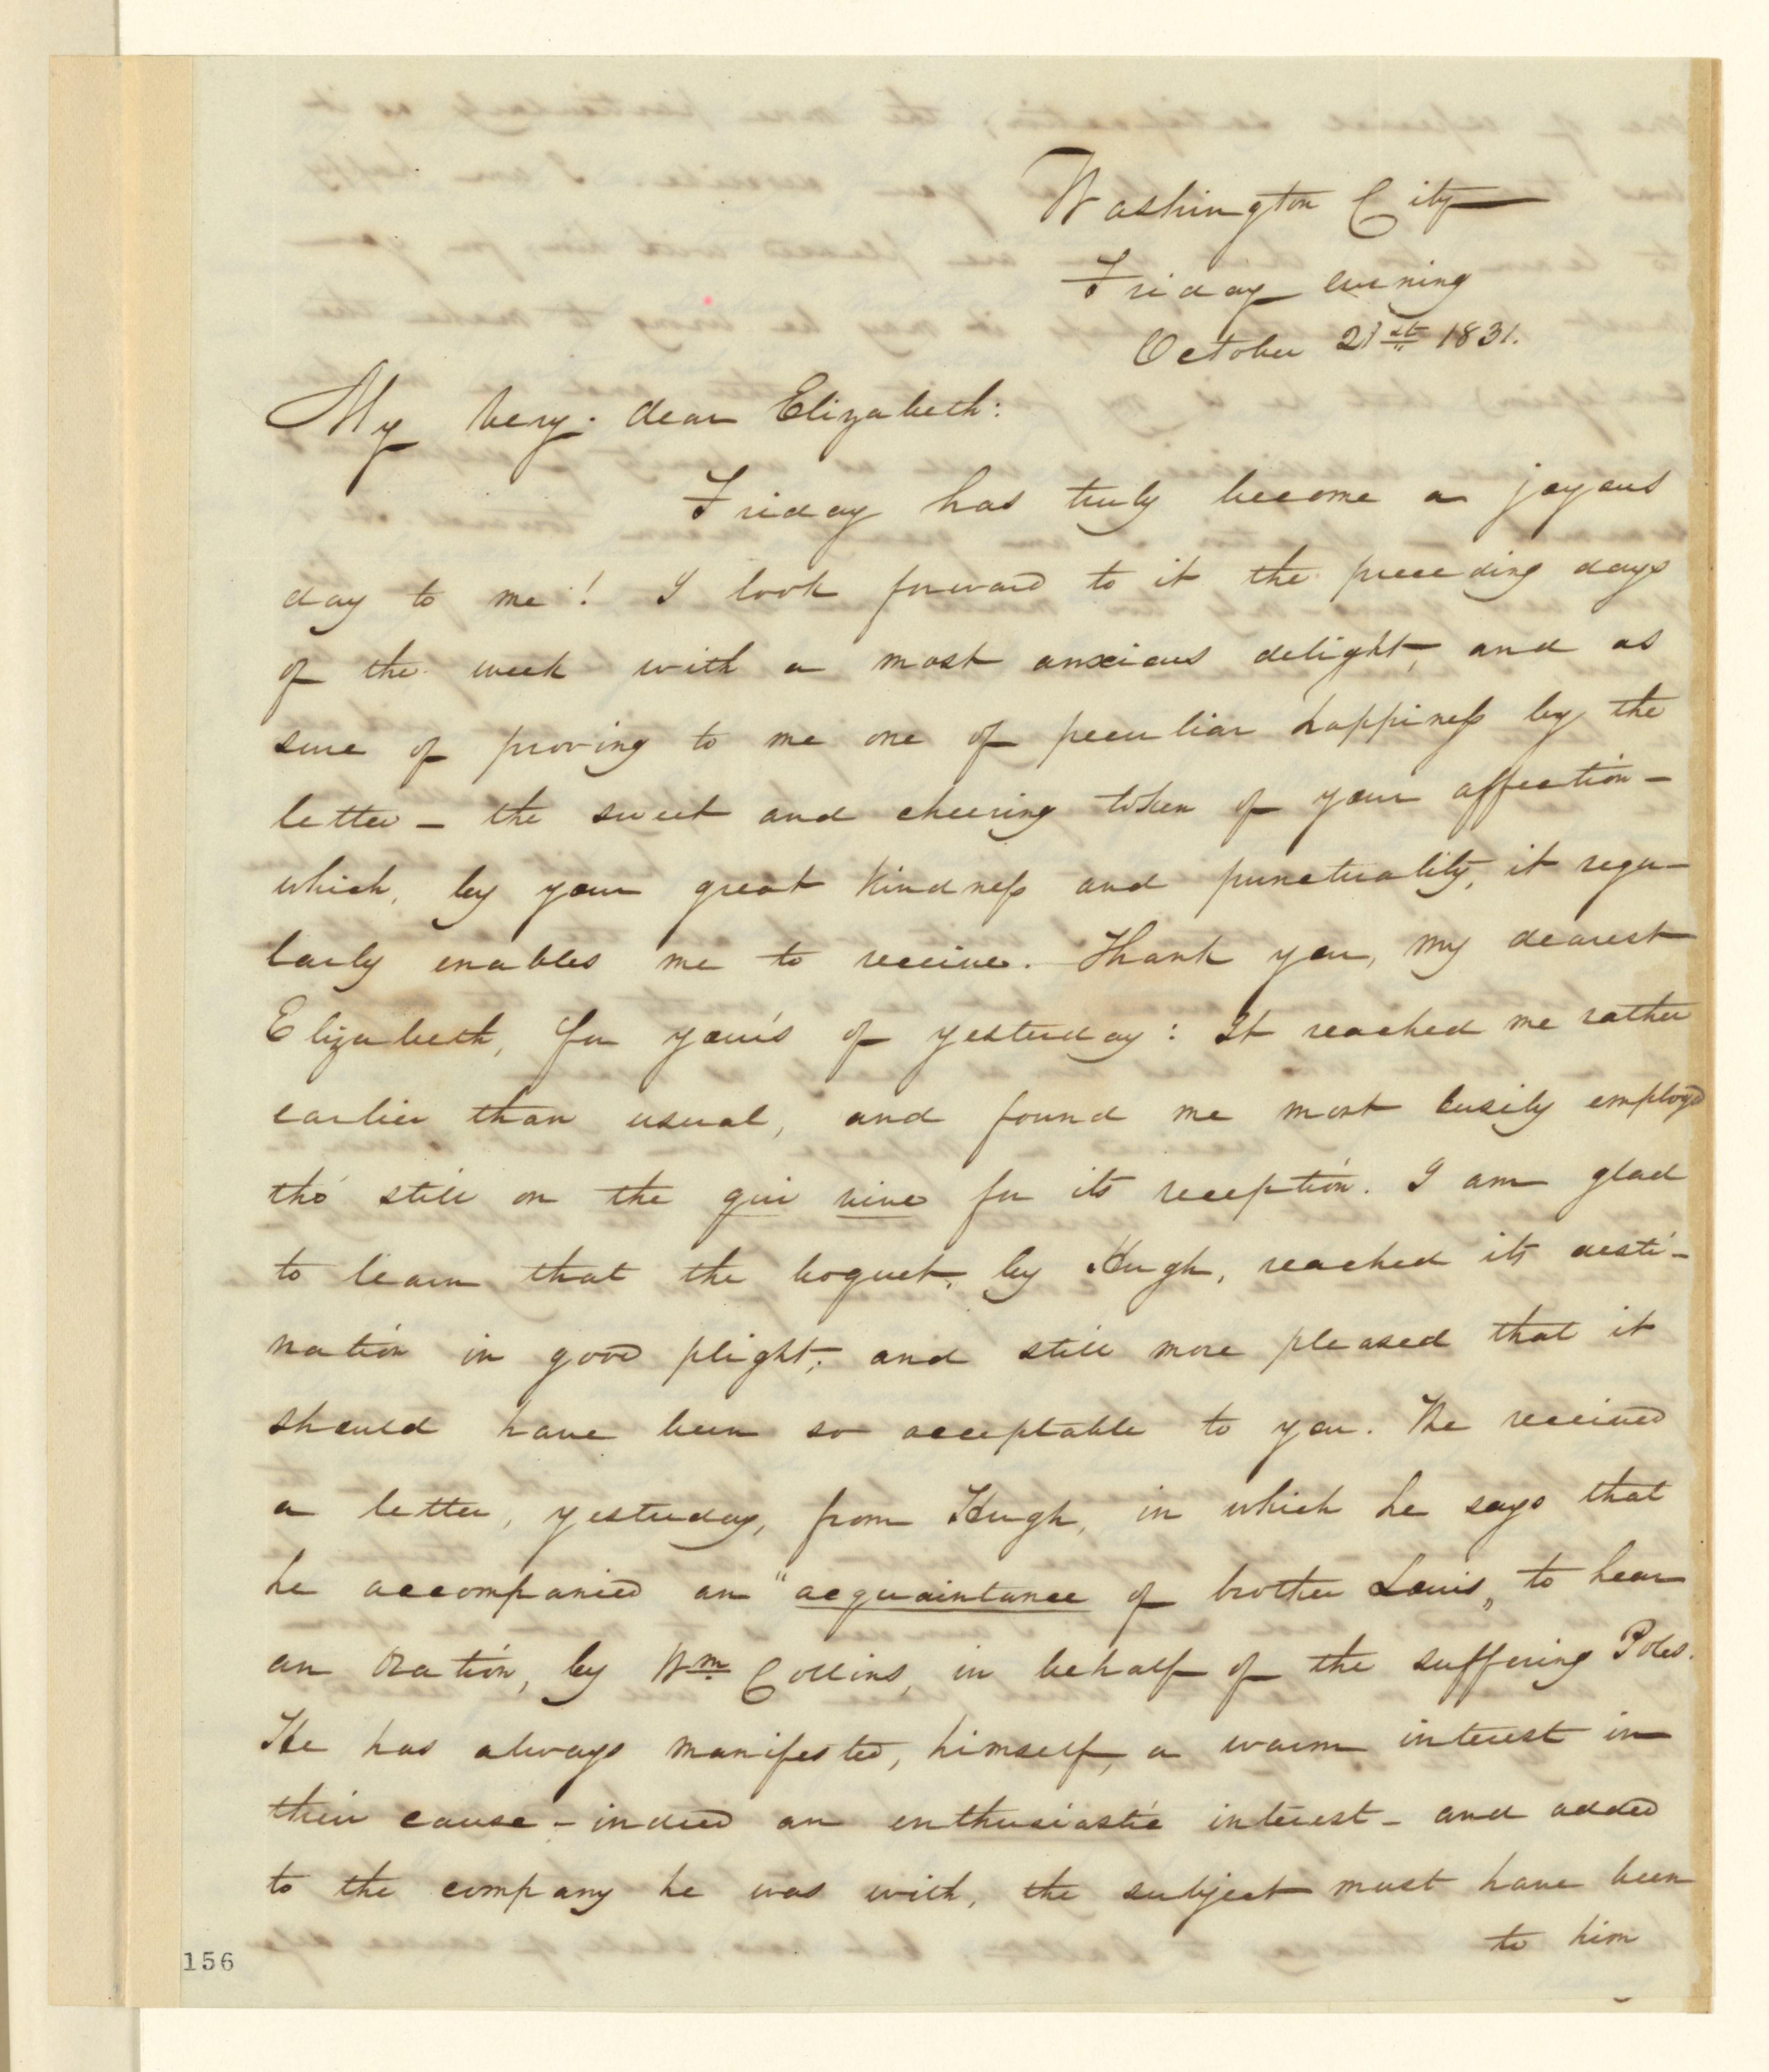 Washington City
Friday evening
October 21st 1831.
My very dear Elizabeth:
Friday has truly become a joyous
day to me! I look forward to it the preceding days
of the week with a most anxious delight, and as
sure of proving to me one of peculiar happiness by the
letter – the sweet and cheering token of your affection –
which, by your great kindness and punctuality, it regu-
larly enables me to receive. Thank you, my dearest
Elizabeth, for your's of yesterday: It reached me rather
earlier than usual, and found me most busily employd
tho' still on the qui vive for its reception. I am glad
to learn that the boquet, by Hugh, reached its desti-
nation in good plight; and still more pleased that it
should have been so acceptable to you. We received
a letter, yesterday, from Hugh, in which he says that
he accompanied an "acquaintance of brother Louis" to hear
an Oration, by Wm. Collins, in behalf of the suffering Poles.
He has always manifested, himself, a warm interest in
their cause – indeed an enthusiastic interest – and added
to the company he was with, the subject must have been
to him
156